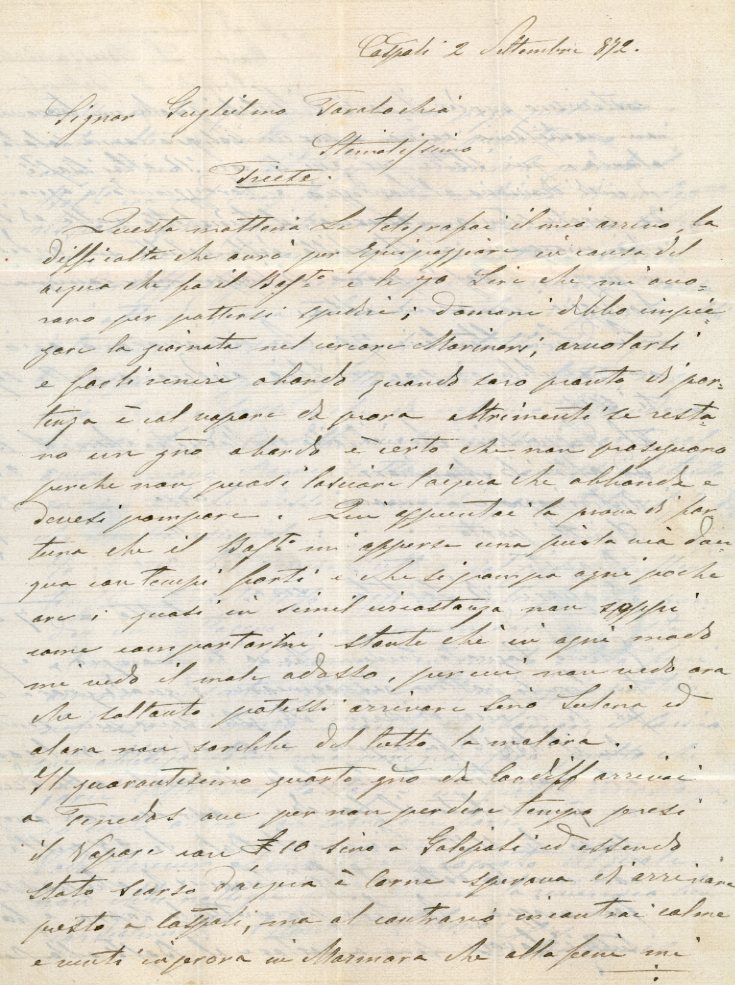 Cospoli 2 Settembre 872.
Signor Guglielmo Tarabochia
Stimatissimo
Trieste.
Questa mattina Le telegrafai il mio arrivo, la
difficoltà che avrò per equipaggiare in causa del
acqua che fa il Bast.to e le 70 Lire che mi
per pottersi spedire; domani debbo impie=
gare la giornata nel cercare Marineri; aruolarli
e farli venire abordo quando sarò pronto di par=
tenza è col vapore da prora altrimenti se resta=
no un gno abordo è certo che non proseguono
perche non puossi lasciare l'acqua che abbonda e
devesi pompare. Qui la prova di for
tuna che il Bast.to mi apperse una via dac
qua con tempi forti e che si pompa ogni poche
ore; quasi in simil circostanza non soppi
come comportarmi stante che in ogni modo
mi vedo il male adosso, per cui non vedo ora
che soltanto potessi arrivare sino Sulina ed
alora non sarebbe del tutto la malora.
Il quarantesimo quarto gno da Cardiff arrivai
a Tenedos ove per non perdere tempo presi
il Vapore con £ 10 sino a Galipoli ed essendo
stato scarso d'acqua è Carne sperava d'arrivare
presto a Cospoli, ma al contrario incontrai calme
e venti inprora in Marmara che alla fine mi